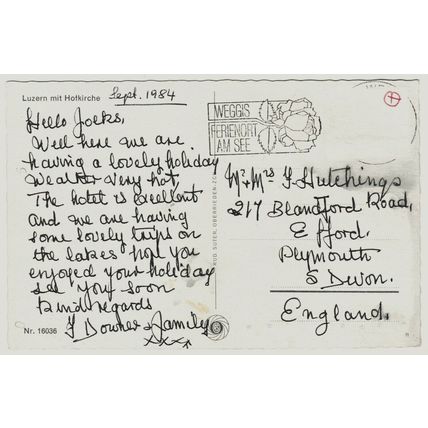 Luzern mit Hofkirche
Sept. 1984
Hello Folks,
Well here we are
having a lovely holiday
weather very hot,
The hotel is excellent
and we are having
some lovely trips on
the lakes hope you
enjoyed your holiday
see you soon
kind regards
Family
xxxx
Nr. 16036
WEGGIS
FERIENORT
AM SEE
Mr & Mrs Hutchings
217 Blandford Road,
Efford.
Plymouth
S Devon.
England.